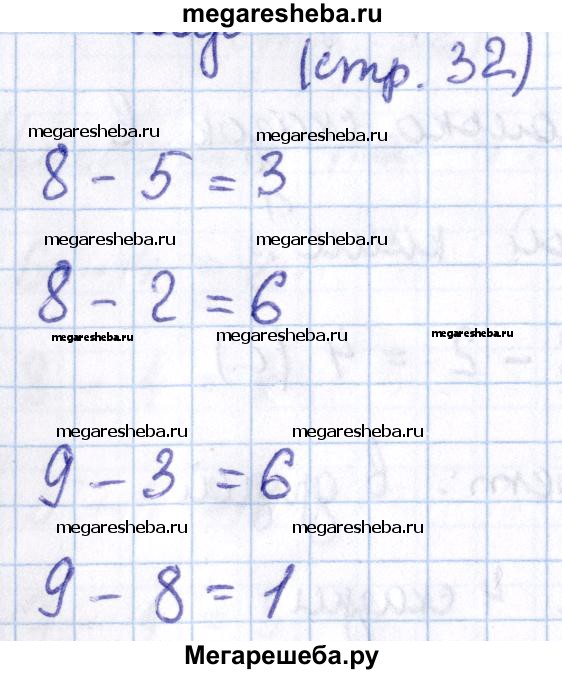 megaresheba.ru
(стр. 32)
megaresheba.ru megaresheba.ru
8 - 5 = 3
megaresheba.ru megaresheba.ru
8 - 2 = 6
megaresheba.ru megaresheba.ru megaresheba.ru
megaresheba.ru megaresheba.ru
9 - 3 = 6
megaresheba.ru megaresheba.ru
9 - 8 = 1
Мегарешеба.ру